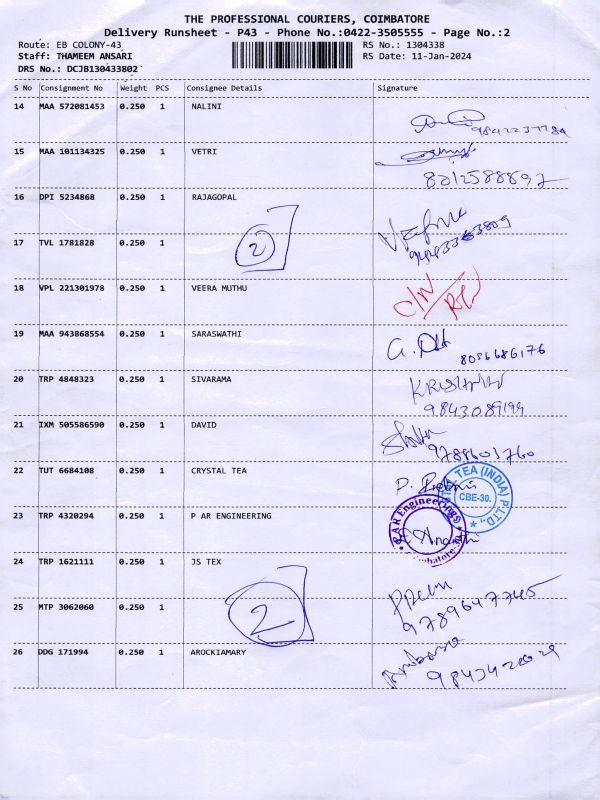 THE PROFESSIONAL COURIERS, COIMBATORE
Delivery Runsheet - P43 - Phone No.:0422-3505555 - Page No.:2
Route: EB COLONY-43 RS No.: 1304338
Staff: THAMEEM ANSARI RS Date: 11-Jan-2024
DRS No.: DCJB130433802
S No Consignment No Weight PCS Consignee Details Signature
14 MAA 572081453 0.250 1 NALINI
15 MAA 101134325 0.250 1 VETRI
8012588897
16 DPI 5234868 0.250 1 RAJAGOPAL
17 TVL 1781828 0.250 1
2
18 VPL 221301978 0.250 1 VEERA MUTHU
19 MAA 943868554 0.250 1 SARASWATHI
8086686176
20 TRP 4848323 0.250 1 SIVARAMA
9843089199
21 IXM 505586590 0.250 1 DAVID
9788603760
22 TUT 6684108 0.250 1 CRYSTAL TEA
TEA (INDIA) P LTD
CBE-30.
23 TRP 4320294 0.250 1 P AR ENGINEERING
P AR Engineering
24 TRP 1621111 0.250 1 JS TEX
25 MTP 3062060 0.250 1
2
9789647745
26 DDG 171994 0.250 1 AROCKIAMARY